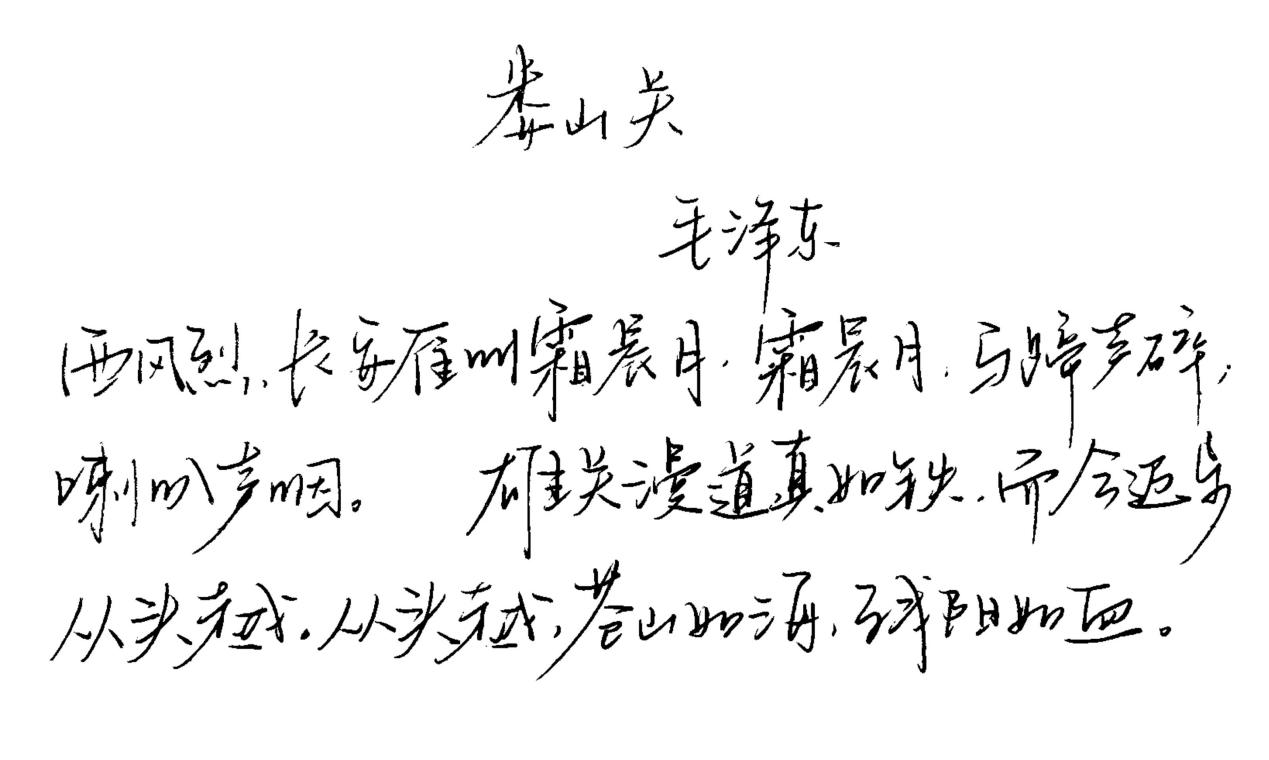 娄山关
毛泽东
西风烈,长安雁叫霜晨月.霜晨月.马蹄声碎,
喇叭声咽。 雄关漫道真如铁.而今迈步
从头越。从头越,苍山如海,残阳如血。